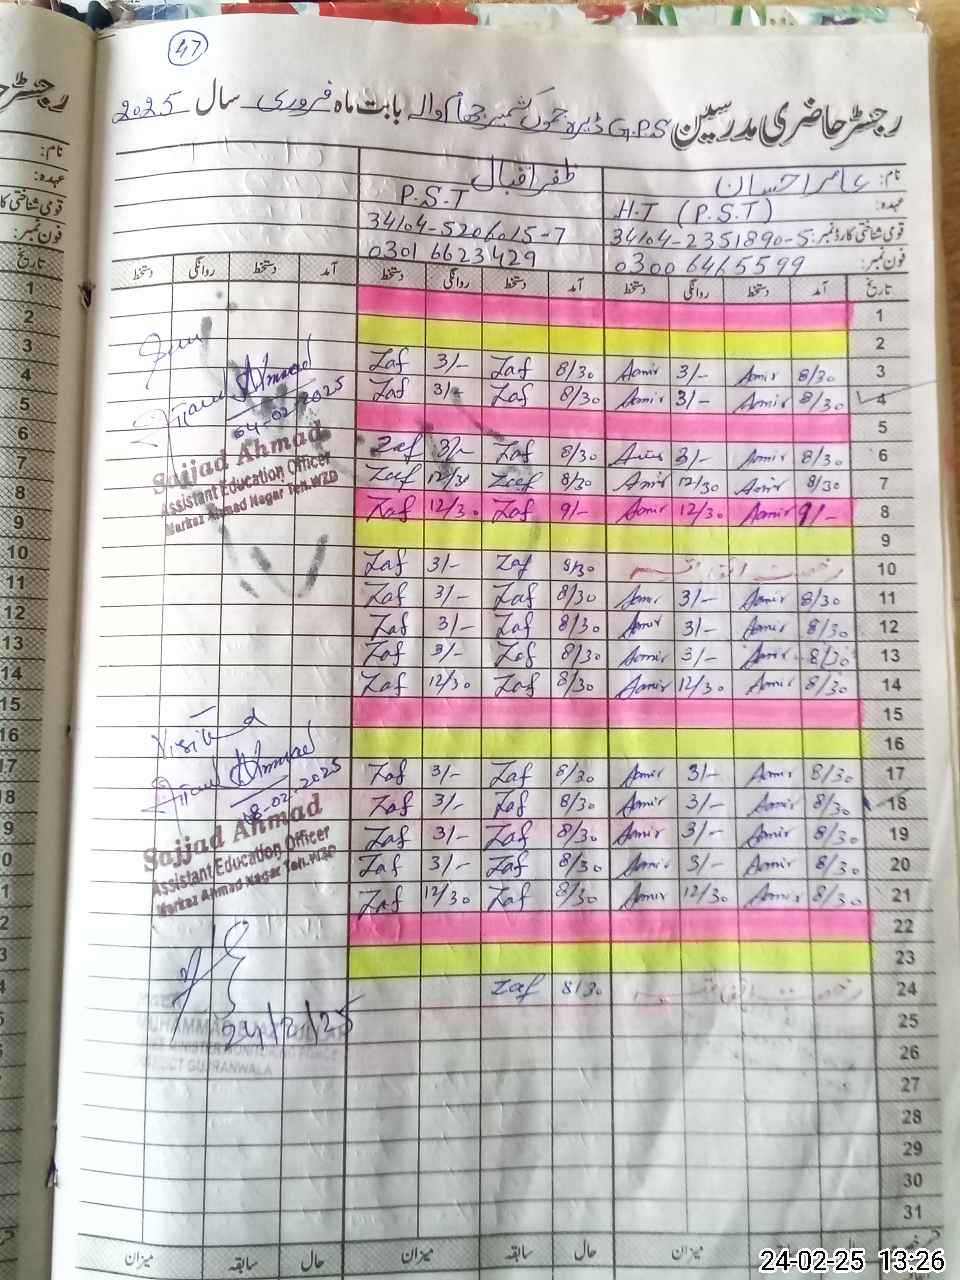 47
رجسٹر حاضری مدرسین G.P.S ڈیرہ جموں کشمیر چھاکوالہ بابت ماہ فروری سال 2025
نام: عامر احسان ظفر اقبال
عہدہ: H.T (P.S.T) P.S.T
قومی شناختی کارڈ نمبر: 34104-2351890-5 34104-5206015-7
فون نمبر: 0300 6465599 0301 6623429
تاریخ آمد دستخط روانگی دستخط آمد دستخط روانگی دستخط آمد دستخط روانگی دستخط
1
2
3 8/30 Aamir 3/- Aamir 8/30 Zaf 3/- Zaf
4 8/30 Aamir 3/- Aamir 8/30 Zaf 3/- Zaf
5
6 8/30 Aamir 3/- Aamir 8/30 Zaf 3/- Zaf
7 8/30 Aamir 12/30 Aamir 8/30 Zaf 12/30 Zaf
8 9/- Aamir 12/30 Aamir 9/- Zaf 12/30 Zaf
9
10 رخصت اتفاقیہ 8/30 Zaf 3/- Zaf
11 8/30 Aamir 3/- Aamir 8/30 Zaf 3/- Zaf
12 8/30 Aamir 3/- Aamir 8/30 Zaf 3/- Zaf
13 8/30 Aamir 3/- Aamir 8/30 Zaf 3/- Zaf
14 8/30 Aamir 12/30 Aamir 8/30 Zaf 12/30 Zaf
15
16
17 8/30 Aamir 3/- Aamir 8/30 Zaf 3/- Zaf
18 8/30 Aamir 3/- Aamir 8/30 Zaf 3/- Zaf
19 8/30 Aamir 3/- Aamir 8/30 Zaf 3/- Zaf
20 8/30 Aamir 3/- Aamir 8/30 Zaf 3/- Zaf
21 8/30 Aamir 12/30 Aamir 8/30 Zaf 12/30 Zaf
22
23
24 رخصت اتفاقیہ 8/30 Zaf
25
26
27
28
29
30
31
حال سابقہ میزان حال سابقہ میزان حال سابقہ میزان
Ahmad
04-02-2025
Sajjad Ahmad
Assistant Education Officer
Markaz Ahmad Nagar Teh.WZD
Visited
Ahmad
18-02-2025
Sajjad Ahmad
Assistant Education Officer
Markaz Ahmad Nagar Teh.WZD
24/2/25
MUHAMMAD
MINISTER MONITORING FORCE
DISTRICT GUJRANWALA
رجسٹر
نام:
عہدہ:
قومی شناختی کارڈ
فون نمبر:
تاریخ
1
2
3
4
5
6
7
8
9
10
11
12
13
14
15
16
17
24-02-25 13:26